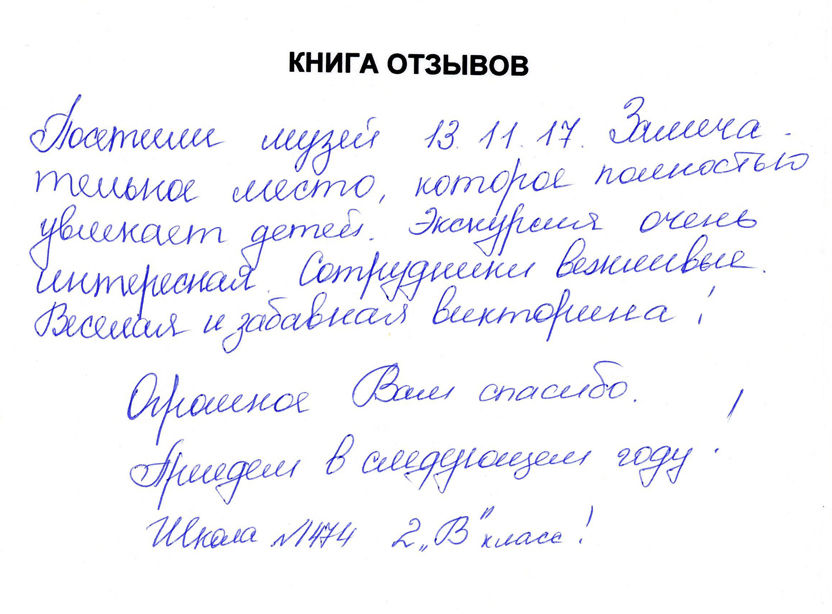 КНИГА ОТЗЫВОВ
Посетили музей 13.11.17. Замеча-
тельное место, которое полностью
увлекает детей. Экскурсия очень
интересная. Сотрудники вежливые.
Веселая и забавная викторина!
Огромное Вам спасибо.
Приедем в следующем году!
Школа №1474 2 „В" класс!